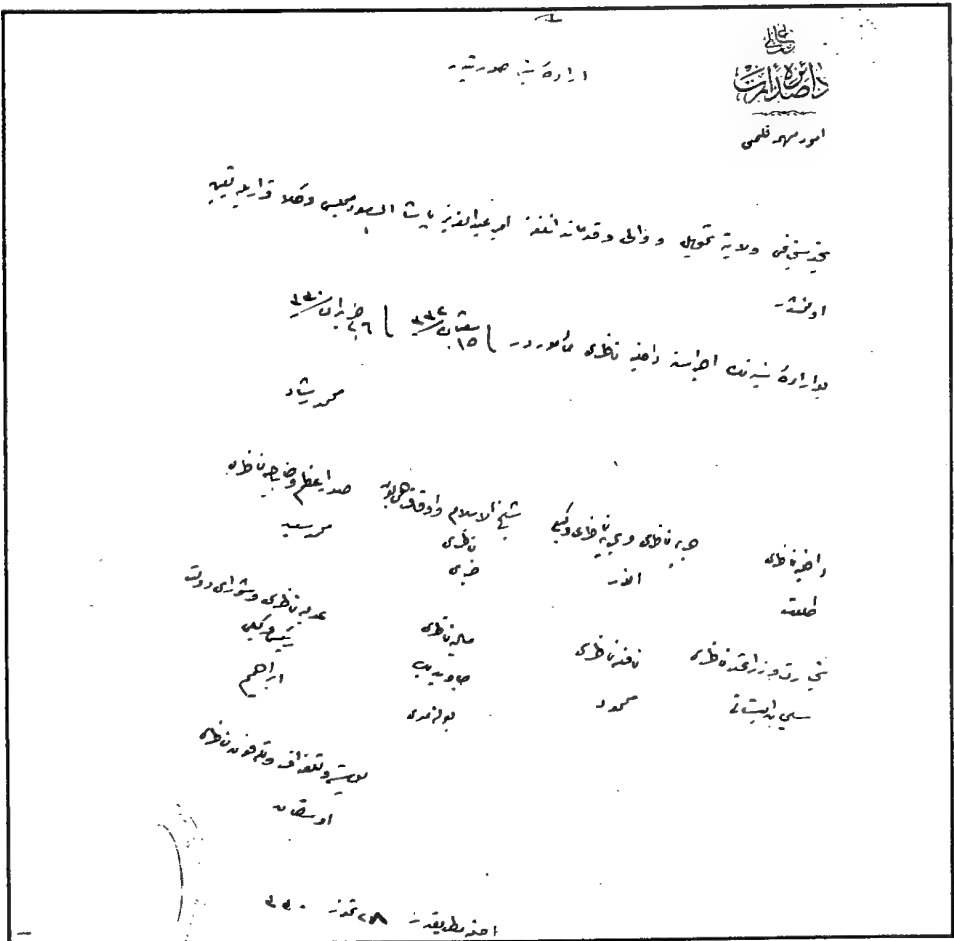 باب عالی
دائرهٔ صدارت
امور مهمه قلمی
ارادهٔ سنیه صورتیدر
نجد سنجاغی ولایته تحویل و والی و قوماندانلغنه امیر عبدالعزیز پاشا السعود مجلس وکلا قراریله تعیین
اولنمشدر
بو ارادهٔ سنیه‌نك اجراسنه داخلیه ناظری مأموردر ١٥ شعبان ٣٣٢ ٢٦ حزیران ٣٣٠
محمد رشاد
صدر اعظم و خارجیه ناظری
محمد سعید
شیخ الاسلام و اوقاف همایون
ناظری
خیری
حربیه ناظری و بحریه ناظری وکیلی
انور
داخلیه ناظری
طلعت
عدلیه ناظری و شورای دولت
رئیس وکیلی
ابراهیم
مالیه ناظری
جاوید بك
بولنمدی
نافعه ناظری
محمود
تجارت و زراعت ناظری
سلیمان البستانی
پوسته و تلغراف و تلفون ناظری
اوسقان
٢٨ تموز ٣٣٠